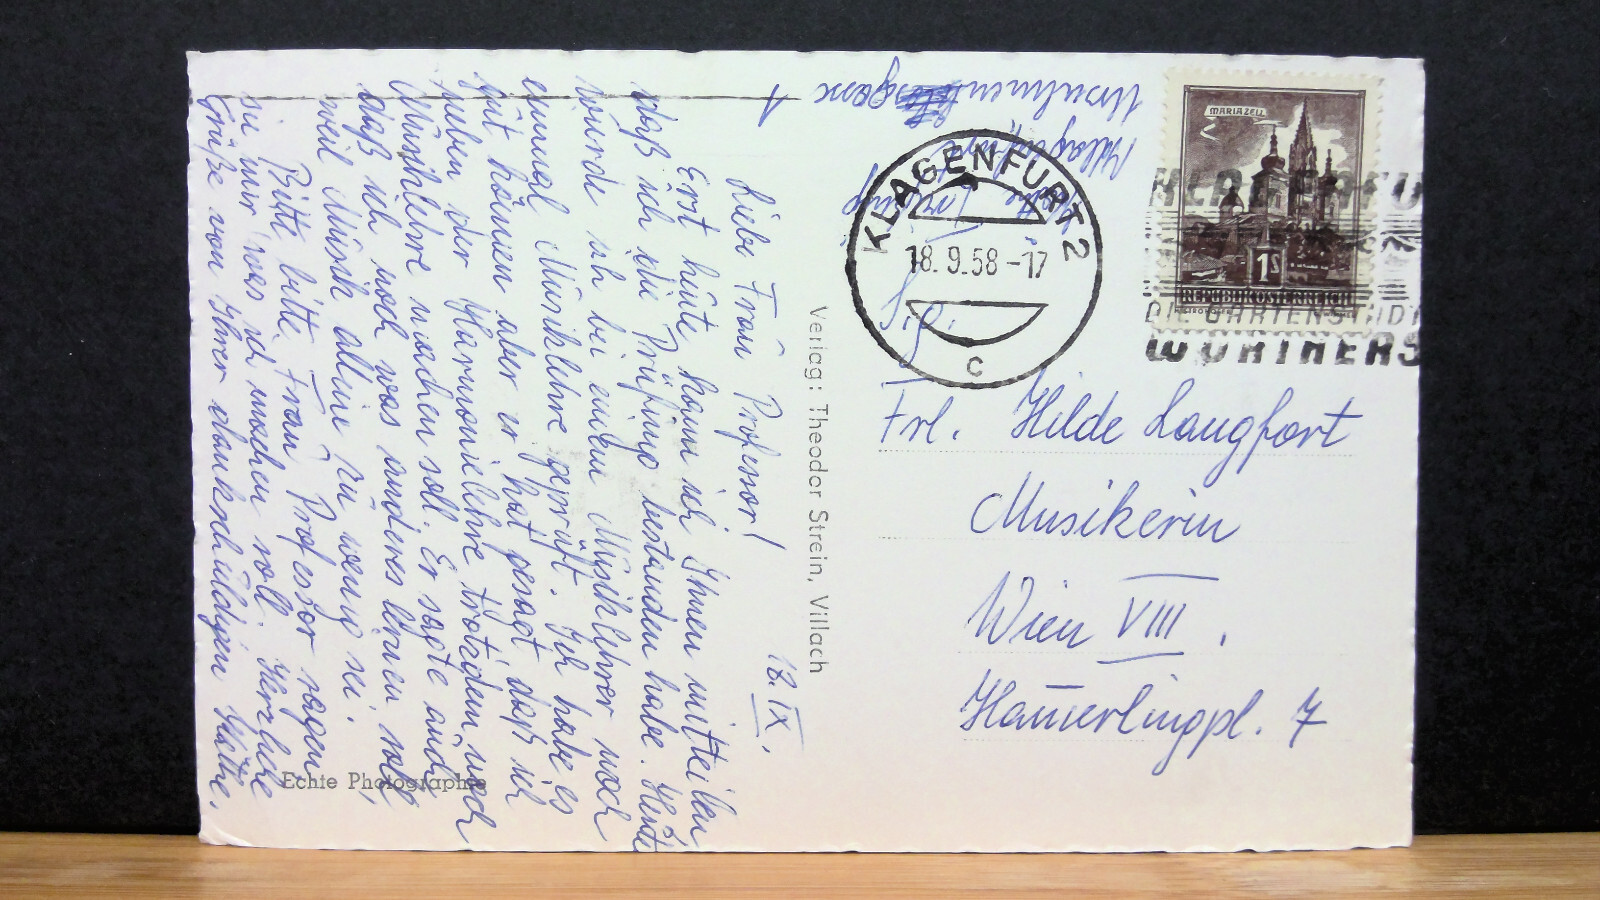 18. IX.
Liebe Frau Professor!
Erst heute kann ich Ihnen mitteilen
daß ich die Prüfung bestanden habe. Heute
wurde ich bei einem Musiklehrer noch
einmal Musiklehre geprüft. Ich habe es
gut können aber er hat gesagt, daß ich
neben der Harmonielehre trotzdem noch
Musiklehre machen soll. Er sagte auch
daß ich noch was anderes lernen soll,
weil Musik alleine zu wenig sei.
Bitte bitte, Frau Professor sagen
sie mir was ich machen soll. Herzliche
Grüße von Ihrer dankschuldigen Käthe.
Echte Photographie
Verlag: Theodor Strein, Villach
Ursulinengasse
Klagenfurt
KLAGENFURT 2
18.9.58-17
c
MARIAZELL
1S
REPUBLIK ÖSTERREICH
DIE GARTENSTADT
WÖRTHERS
Frl. Hilde Langfort
Musikerin
Wien VIII.
Hamerlingpl. 7